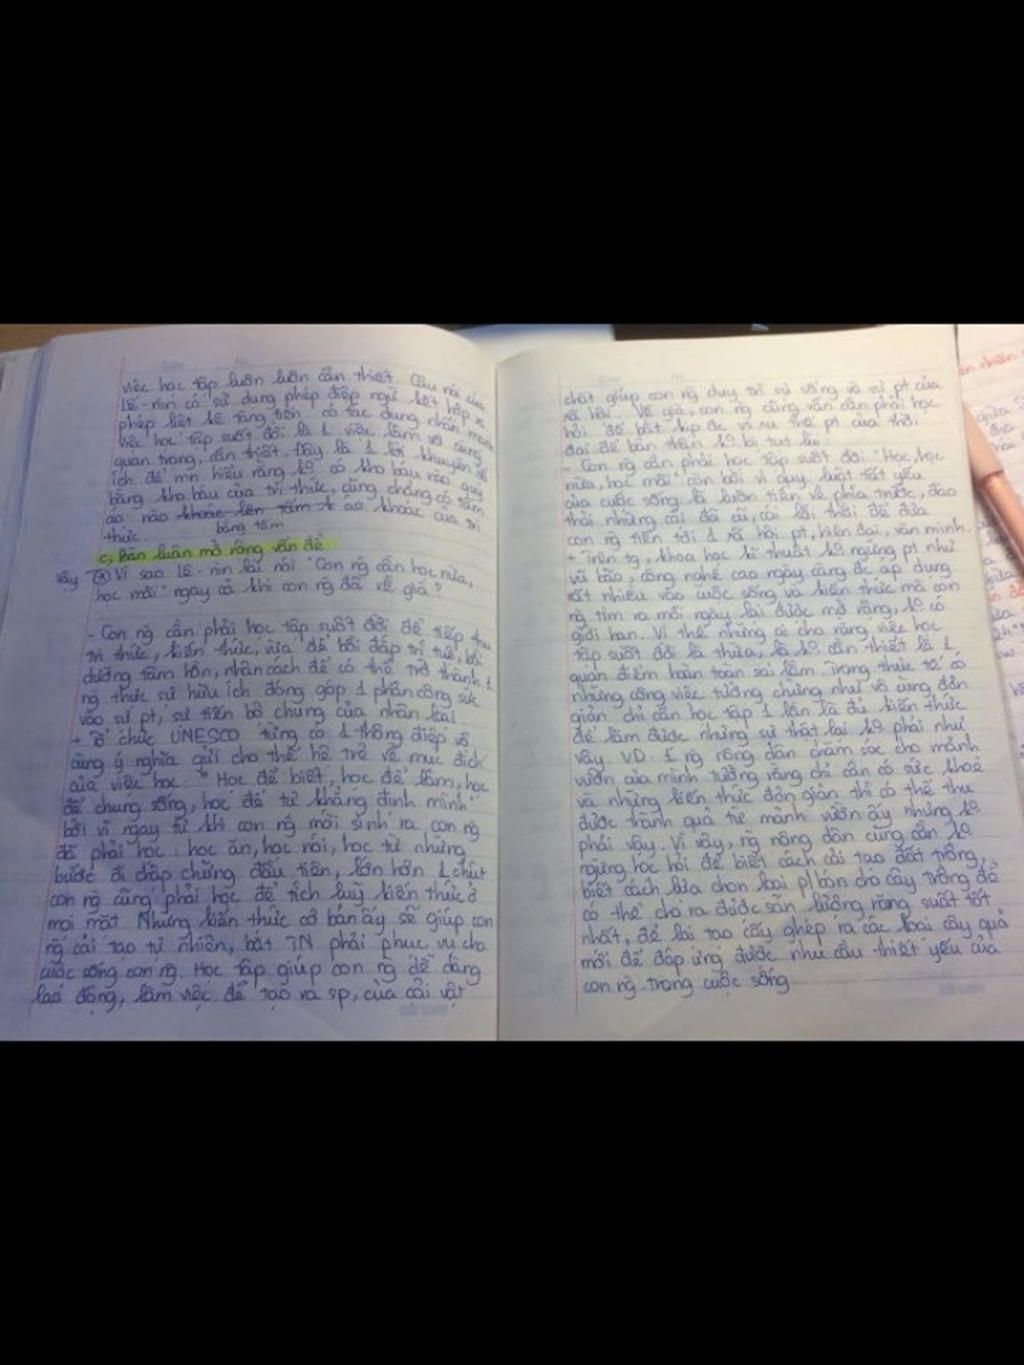 việc học tập luôn luôn cần thiết. Câu nói của
Lê-nin có sử dụng phép điệp ngữ kết hợp vs
phép liệt kê tăng tiến có tác dụng nhấn mạnh
việc học tập suốt đời là 1 việc làm vô cùng
quan trọng, cần thiết. Đây là 1 lời khuyên
ích để mn hiểu rằng ko có kho báu nào quý
bằng kho báu của tri thức, cũng chẳng có tấm
áo nào khoác lên tấm áo khoác của tri
bằng tấm
thức.
c, Bàn luận mở rộng vấn đề
Vậy Vì sao Lê-nin lại nói "Con ng̃ cần học nữa,
học mãi" ngay cả khi con ng̃ đã về già?
- Con ng̃ cần phải học tập suốt đời để tiếp thu
tri thức, kiến thức, vừa để bồi đắp trí tuệ, bồi
dưỡng tâm hồn, nhân cách để có thể trở thành 1
ng̃ thực sự hữu ích đóng góp 1 phần công sức
vào sự pt, sự tiến bộ chung của nhân loại.
+ Tổ chức UNESCO từng có 1 thông điệp vô
cùng ý nghĩa gửi cho thế hệ trẻ về mục đích
của việc học: "Học để biết, học để làm, học
để chung sống, học để tự khẳng định mình"
bởi vì ngay từ khi con ng̃ mới sinh ra con ng̃
đã phải học: học ăn, học nói, học từ những
bước đi chập chững đầu tiên, lớn hơn 1 chút
con ng̃ cũng phải học để tích luỹ kiến thức ở
mọi mặt. Những kiến thức cơ bản ấy sẽ giúp con
ng̃ cải tạo tự nhiên, bắt TN phải phục vụ cho
cuộc sống con ng̃. Học tập giúp con ng̃ dễ dàng
lao động, làm việc để tạo ra sp, của cải vật
chất giúp con ng̃ duy trì sự sống và sự pt của
xã hội. Về già, con ng̃ cũng vẫn cần phải học
hỏi để bắt kịp đc vs xu thế pt của thời
đại để bản thân ko bị tụt lùi
- Con ng̃ cần phải học tập suốt đời "Học, học
nữa, học mãi" còn bởi vì quy luật tất yếu
của cuộc sống là luôn tiến về phía trước, đào
thải những cái đã cũ, cái lỗi thời để đưa
con ng̃ tiến tới 1 xã hội pt, hiện đại, văn minh.
+ Trên tg, khoa học kĩ thuật ko ngừng pt như
vũ bão, công nghệ cao ngày càng đc áp dụng
rất nhiều vào cuộc sống và kiến thức mà con
ng̃ tìm ra mỗi ngày lại được mở rộng, ko có
giới hạn. Vì thế những ai cho rằng việc học
tập suốt đời là thừa, là ko cần thiết là 1
quan điểm hoàn toàn sai lầm. Trong thực tế có
những công việc tưởng chừng như vô cùng đơn
giản chỉ cần học tập 1 lần là đủ kiến thức
để làm được nhưng sự thật lại ko phải như
vậy. VD: 1 ng̃ nông dân chăm sóc cho mảnh
vườn của mình tưởng rằng chỉ cần có sức khoẻ
và những kiến thức đơn giản thì có thể thu
được thành quả từ mảnh vườn ấy nhưng ko
phải vậy. Vì vậy, ng̃ nông dân cũng cần ko
ngừng học hỏi để biết cách cải tạo đất trồng,
biết cách lựa chọn loại p/bón cho cây trồng để
có thể cho ra được sản lượng năng suất tốt
nhất, để lai tạo cấy ghép ra các loại cây quả
mới để đáp ứng được nhu cầu thiết yếu của
con ng̃ trong cuộc sống